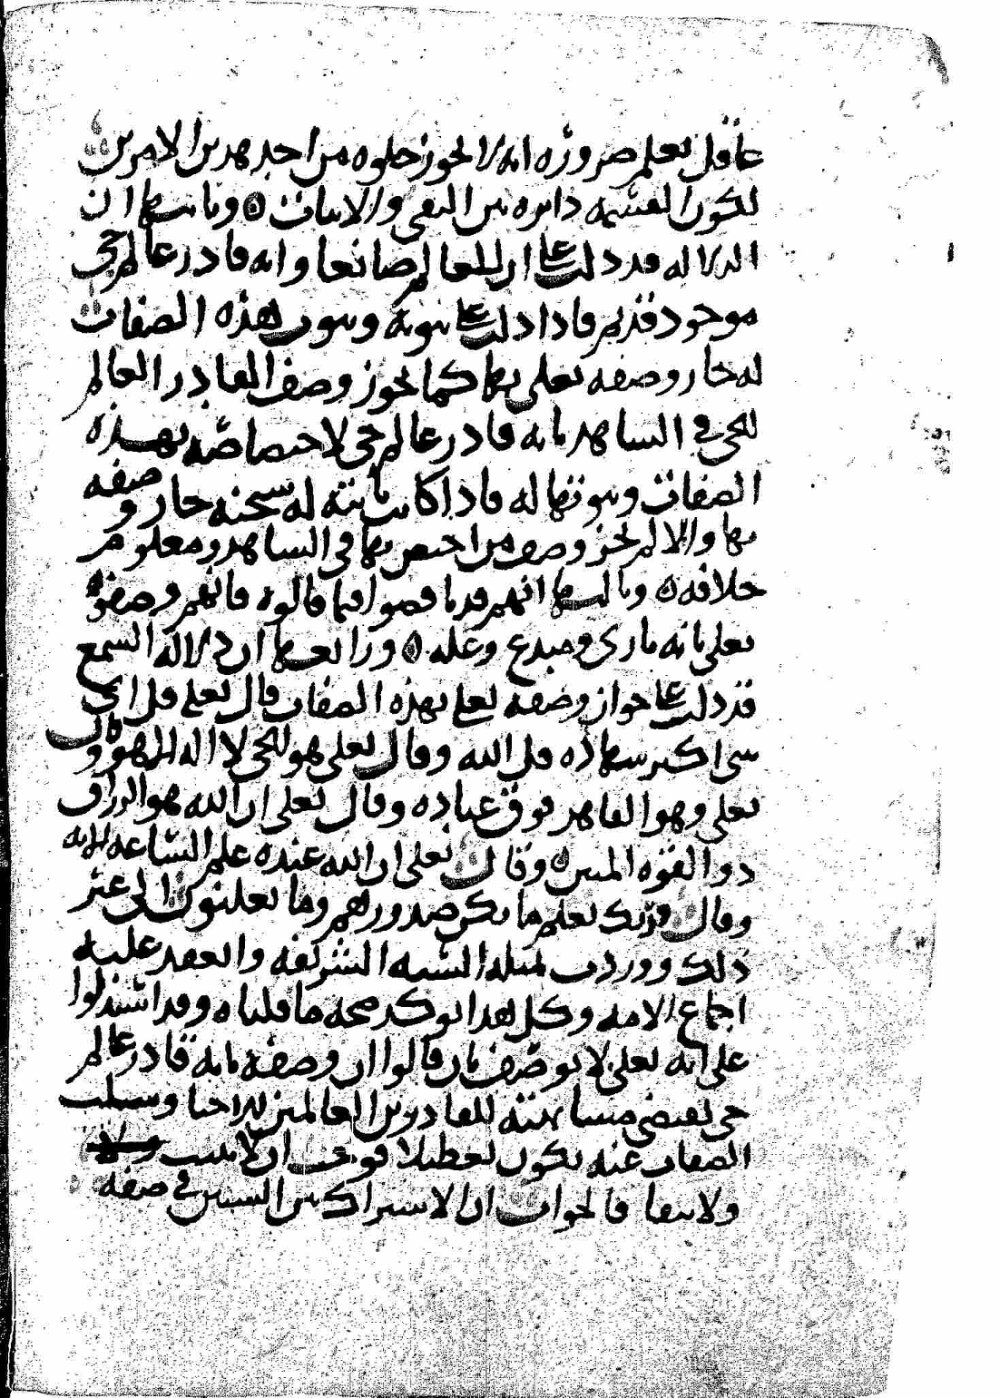 عاقل يعلم ضرورة انه لا يجوز خلوه من احد هذين الامرين
لكون القسمه دايره بين النفي والاثبات ۞ وثانيها ان
الدلاله قد دلت على ان للعالم صانعا وانه قادر عالم حي
موجود قديم فاذا دلت على ثبوته وثبوت هذه الصفات
له جاز وصفه تعلى بها كما يجوز وصف القادر العالم
الحي في الشاهد بانه قادر عالم حي لاختصاصه بهذه
الصفات وثبوتها له فاذا كانت ثابته له سبحنه جاز وصفه
بها والا لم يجز وصف من اختص بها في الشاهد ومعلوم
خلافه ۞ وثالثها انهم قد ناقضوا فيما قالوه فانهم وصفوه
تعلى بانه بارئ ومبدع وعله ۞ ورابعها ان دلاله السمع
قد دلت على جواز وصفه تعلى بهذه الصفات قال تعلى قل اي
شي اكبر شهاده قل الله وقال تعلى هو الحي لا اله الا هو وقال
تعلى وهو القاهر فوق عباده وقال تعلى ان الله هو الرزاق
ذو القوه المتين وقال تعلى ان الله عنده علم الساعه الايه
وقال وربك يعلم ما تكن صدورهم وما يعلنون الى غير
ذلك ووردت بمثله السنه الشريفه وانعقد عليه
اجماع الامه وكل هذا يوكد صحه ما قلناه وقد استدلوا
على انه تعلى لا يوصف بان قالوا ان وصفه بانه قادر عالم
حي يقتضي مشابهته للقادرين العالمين الاحيا وسلب
الصفات عنه يكون تعطيلا فوجب ان لا يثبت
ولا ينفا فالجواب ان الاشتراك بين الشيئين في صفه